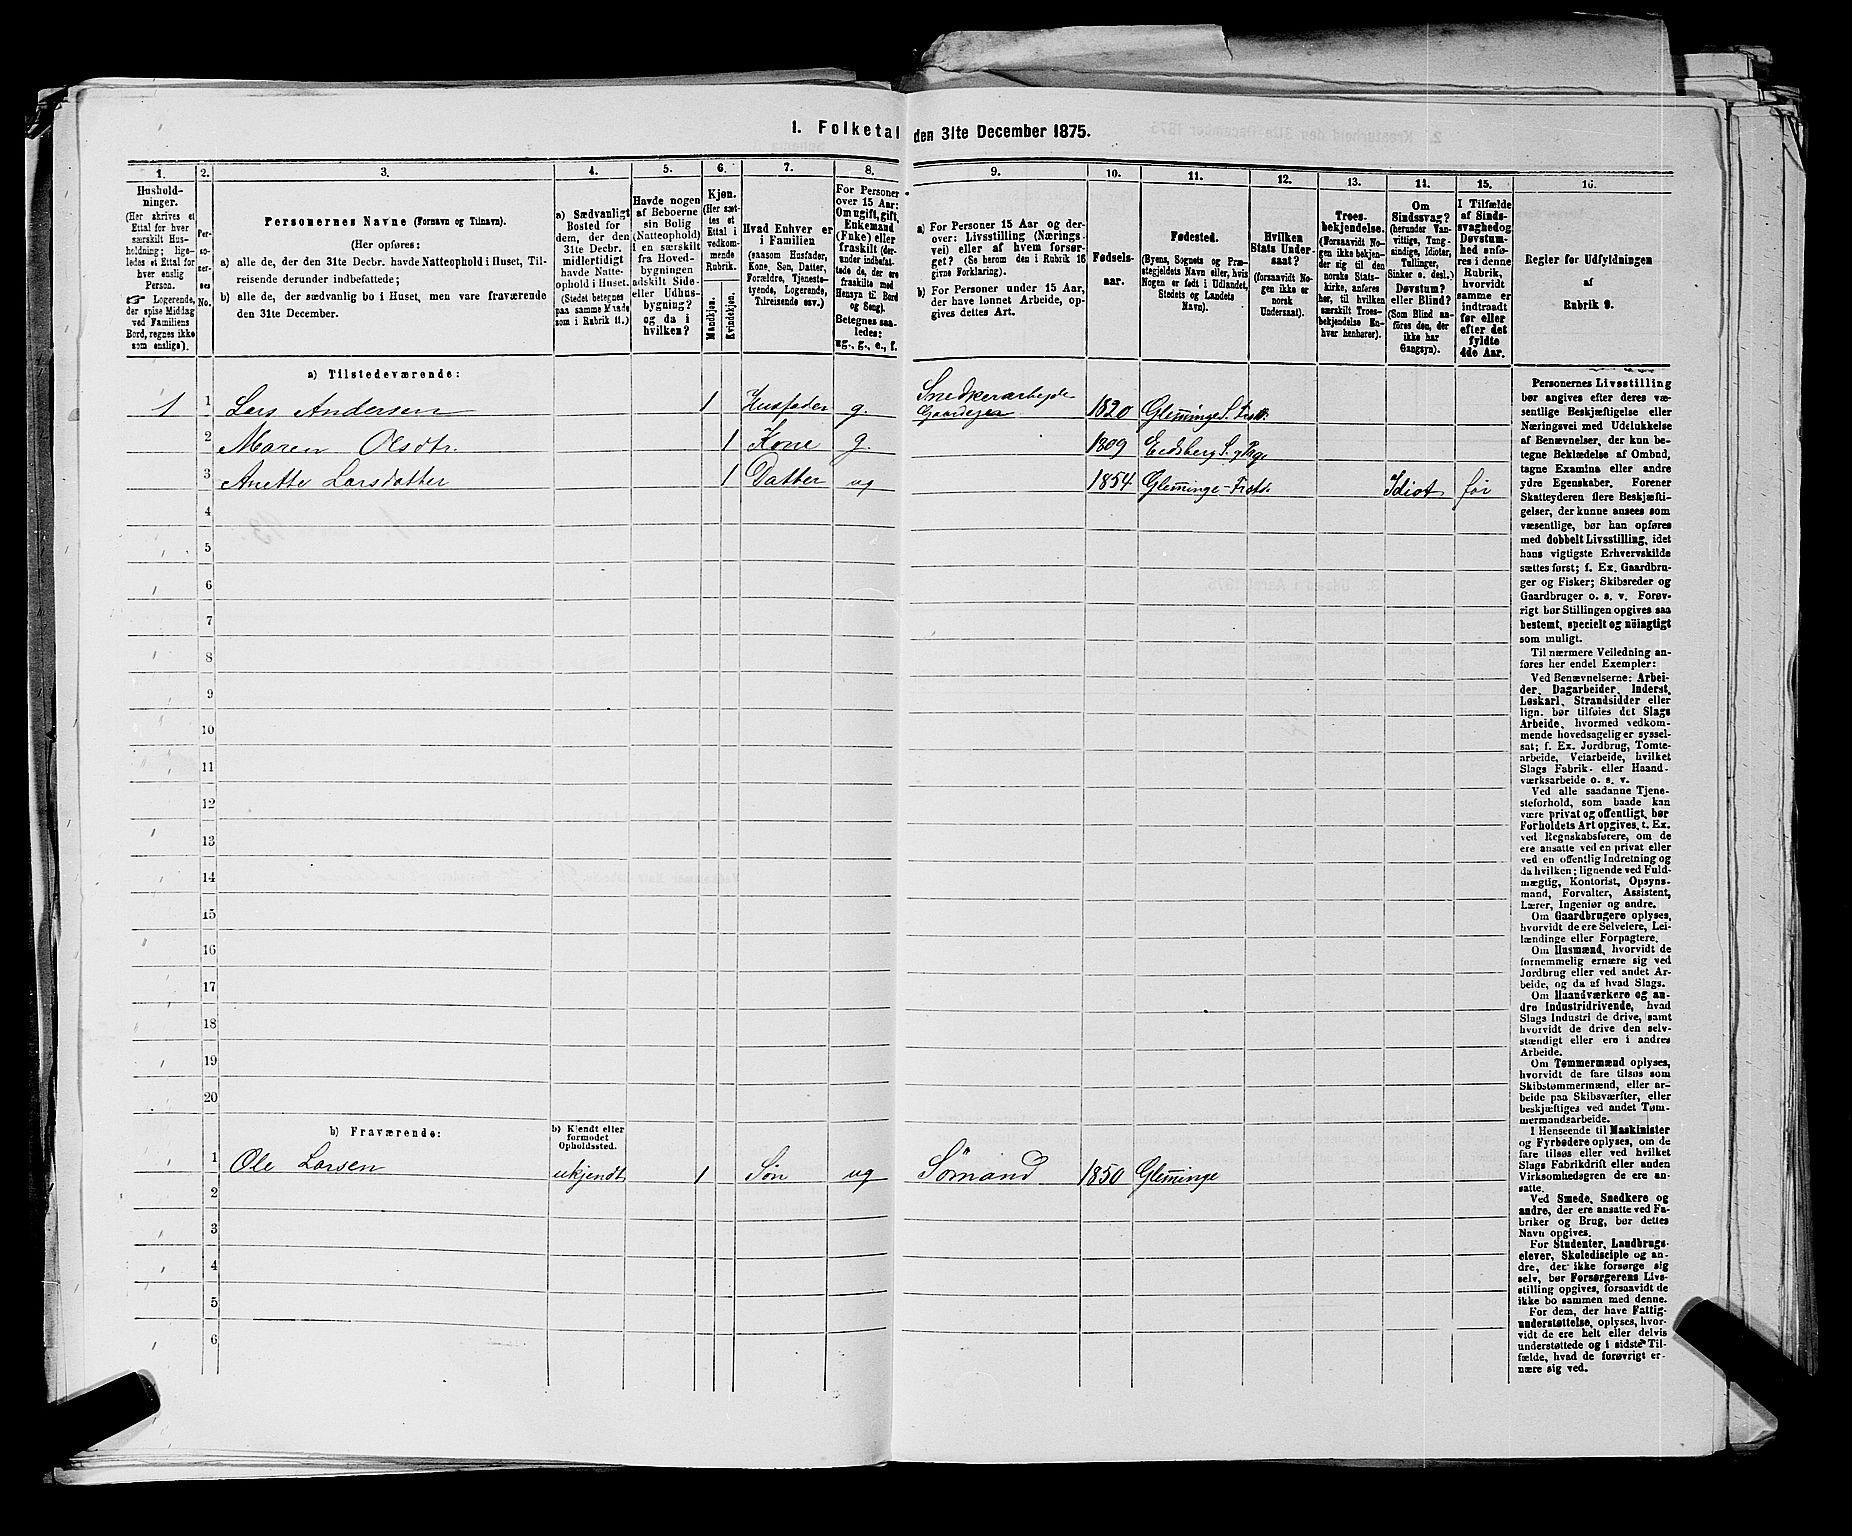 1. Folketal den 31te December 1875.
1.
Hushold-
ninger.
(Her skrives et
Ettal for hver
særskilt Hus-
holdning; lige-
ledes et Ettal for
hver enslig
Person.
☞ Logerende,
der spise Middag
ved Familiens
Bord, regnes ikke
som enslige).
2.
Per-
so-
ner-
nes
No.
3.
Personernes Navne (Fornavn og Tilnavn).
(Her opføres:
a) alle de, der den 31te Decbr. havde Natteophold i Huset, Til-
reisende derunder indbefattede;
b) alle de, der sædvanlig bo i Huset, men vare fraværende
den 31te December.
4.
a) Sædvanligt
Bosted for
dem, der den
31te Decbr.
midlertidigt
havde Natte-
ophold i Huset.
(Stedet betegnes
paa samme Maade
som i Rubrik 11.)
5.
Havde nogen
af Beboerne
sin Bolig
(Natteophold)
i en særskilt
fra Hoved-
bygningen
adskilt Side-
eller Udhus-
bygning?
og da i
hvilken?
6.
Kjøn.
(Her sæt-
tes et
Ettal i
vedkom-
mende
Rubrik.
Mandkjøn.
Kvindekjøn.
7.
Hvad Enhver er
i Familien
(saasom Husfader,
Kone, Søn, Datter,
Forældre, Tjeneste-
tyende, Logerende,
Tilreisende osv.)
8.
For Personer
over 15 Aar:
Om ugift, gift,
Enkemand
(Enke) eller
fraskilt (der-
under indbefat-
tede de, der ere
fraskilte med
Hensyn til Bord
og Seng).
Betegnes saa-
ledes:
ug., g., e., f.
9.
a) For Personer 15 Aar og der-
over: Livsstilling (Nærings-
vei) eller af hvem forsør-
get? (Se herom den i Rubrik 16
givne Forklaring).
b) For Personer under 15 Aar,
der have lønnet Arbeide, op-
gives dettes Art.
10.
Fødsels-
aar.
11.
Fødested.
(Byens, Sognets og Præ-
stegjeldets Navn eller, hvis
Nogen er født i Udlandet,
Stedets og Landets
Navn).
12.
Hvilken
Stats Under-
saat?
(forsaavidt No-
gen ikke er
norsk
Undersaat).
13.
Troes-
bekjendelse.
(Forsaavidt No-
gen ikke bekjen-
der sig til den
norske Stats-
kirke, anføres
her, til hvilken
særskilt Troes-
bekjendelse En-
hver henhører).
14.
Om
Sindssvag?
(herunder Van-
vittige, Tung-
sindige, Idioter,
Tullinger,
Sinker o. desl.)
Døvstum?
eller Blind?
(Som Blind an-
føres den, der
ikke har
Gangsyn).
15.
I Tilfælde
af Sinds-
svaghed og
Døvstum-
hed anfø-
res i denne
Rubrik,
hvorvidt
samme er
indtraadt
før eller
efter det
fyldte
4de Aar.
16.
Regler for Udfyldningen
af
Rubrik 9.
a) Tilstedeværende:
1 1 Lars Andersen 1 Husfader g. Snedkerarbejde Gaardejer 1820 Glemminge S. Frst.
2 Maren Olsdtr. 1 Kone g. 1809 Eidsberg S. & Pgj.
3 Anette Larsdatter 1 Datter ug 1854 Glemminge-Frstd. Idiot før
4
5
6
7
8
9
10
11
12
13
14
15
16
17
18
19
20
b) Fraværende:
b) Kjendt eller
formodet
Opholdssted.
1 Ole Larsen ukjendt 1 Søn ug Sømand 1850 Glemminge
2
3
4
5
6
Personernes Livsstilling
bør angives efter deres væ-
sentlige Beskjæftigelse eller
Næringsvei med Udelukkelse
af Benævnelser, der kun be-
tegne Beklædelse af Ombud,
tagne Examina eller andre
ydre Egenskaber. Forener
Skatteyderen flere Beskjæfti-
gelser, der kunne ansees som
væsentlige, bør han opføres
med dobbelt Livsstilling, idet
hans vigtigste Erhvervskilde
sættes først; f. Ex. Gaardbru-
ger og Fisker; Skibsreder og
Gaardbruger o. s. v. Forøv-
rigt bør Stillingen opgives saa
bestemt, specielt og nöiagtigt
som muligt.
Til nærmere Veiledning an-
føres her endel Exempler:
Ved Benævnelserne: Arbei-
der, Dagarbeider, Inderst,
Løskarl, Strandsidder eller
lign. bør tilføies det Slags
Arbeide, hvormed vedkom-
mende hovedsagelig er syssel-
sat; f. Ex. Jordbrug, Tomte-
arbeide, Veiarbeide, hvilket
Slags Fabrik- eller Haand-
værksarbeide o. s. v.
Ved alle saadanne Tjene-
steforhold, som baade kan
være privat og offentligt, bør
Forholdets Art opgives, t. Ex.
ved Regnskabsførere, om de
ere ansatte ved en privat eller
ved en offentlig Indretning og
da hvilken; lignende ved Fuld-
mægtig, Kontorist, Opsyns-
mand, Forvalter, Assistent,
Lærer, Ingeniør og andre.
Om Gaardbrugere oplyses,
hvorvidt de ere Selveiere, Lei-
lændinge eller Forpagtere.
Om Husmænd, hvorvidt de
fornemmelig ernære sig ved
Jordbrug eller ved andet Ar-
beide, og da af hvad Slags.
Om Haandværkere og an-
dre Industridrivende, hvad
Slags Industri de drive, samt
hvorvidt de drive den selv-
stændigt eller ere i andres
Arbeide.
Om Tømmermænd oplyses,
hvorvidt de fare tilsøs som
Skibstømmermænd, eller ar-
beide paa Skibsværfter, eller
beskjæftiges ved andet Tøm-
mermandsarbeide.
I Henseende til Maskinister
og Fyrbødere oplyses, om de
fare tilsøs eller ved hvilket
Slags Fabrikdrift eller anden
Virksomhedsgren de ere an-
satte.
Ved Smede, Snedkere og
andre, der ere ansatte ved Fa-
briker og Brug, bør dettes
Navn opgives.
For Studenter, Landbrugs-
elever, Skoledisciple og an-
dre, der ikke forsørge sig
selv, bør Forsørgerens Livs-
stilling opgives, forsaavidt de
ikke bo sammen med denne.
For dem, der have Fattig-
understøttelse, oplyses, hvor-
vidt de ere helt eller delvis
understøttede og i sidste Til-
fælde, hvad de forøvrigt er-
nære sig ved.